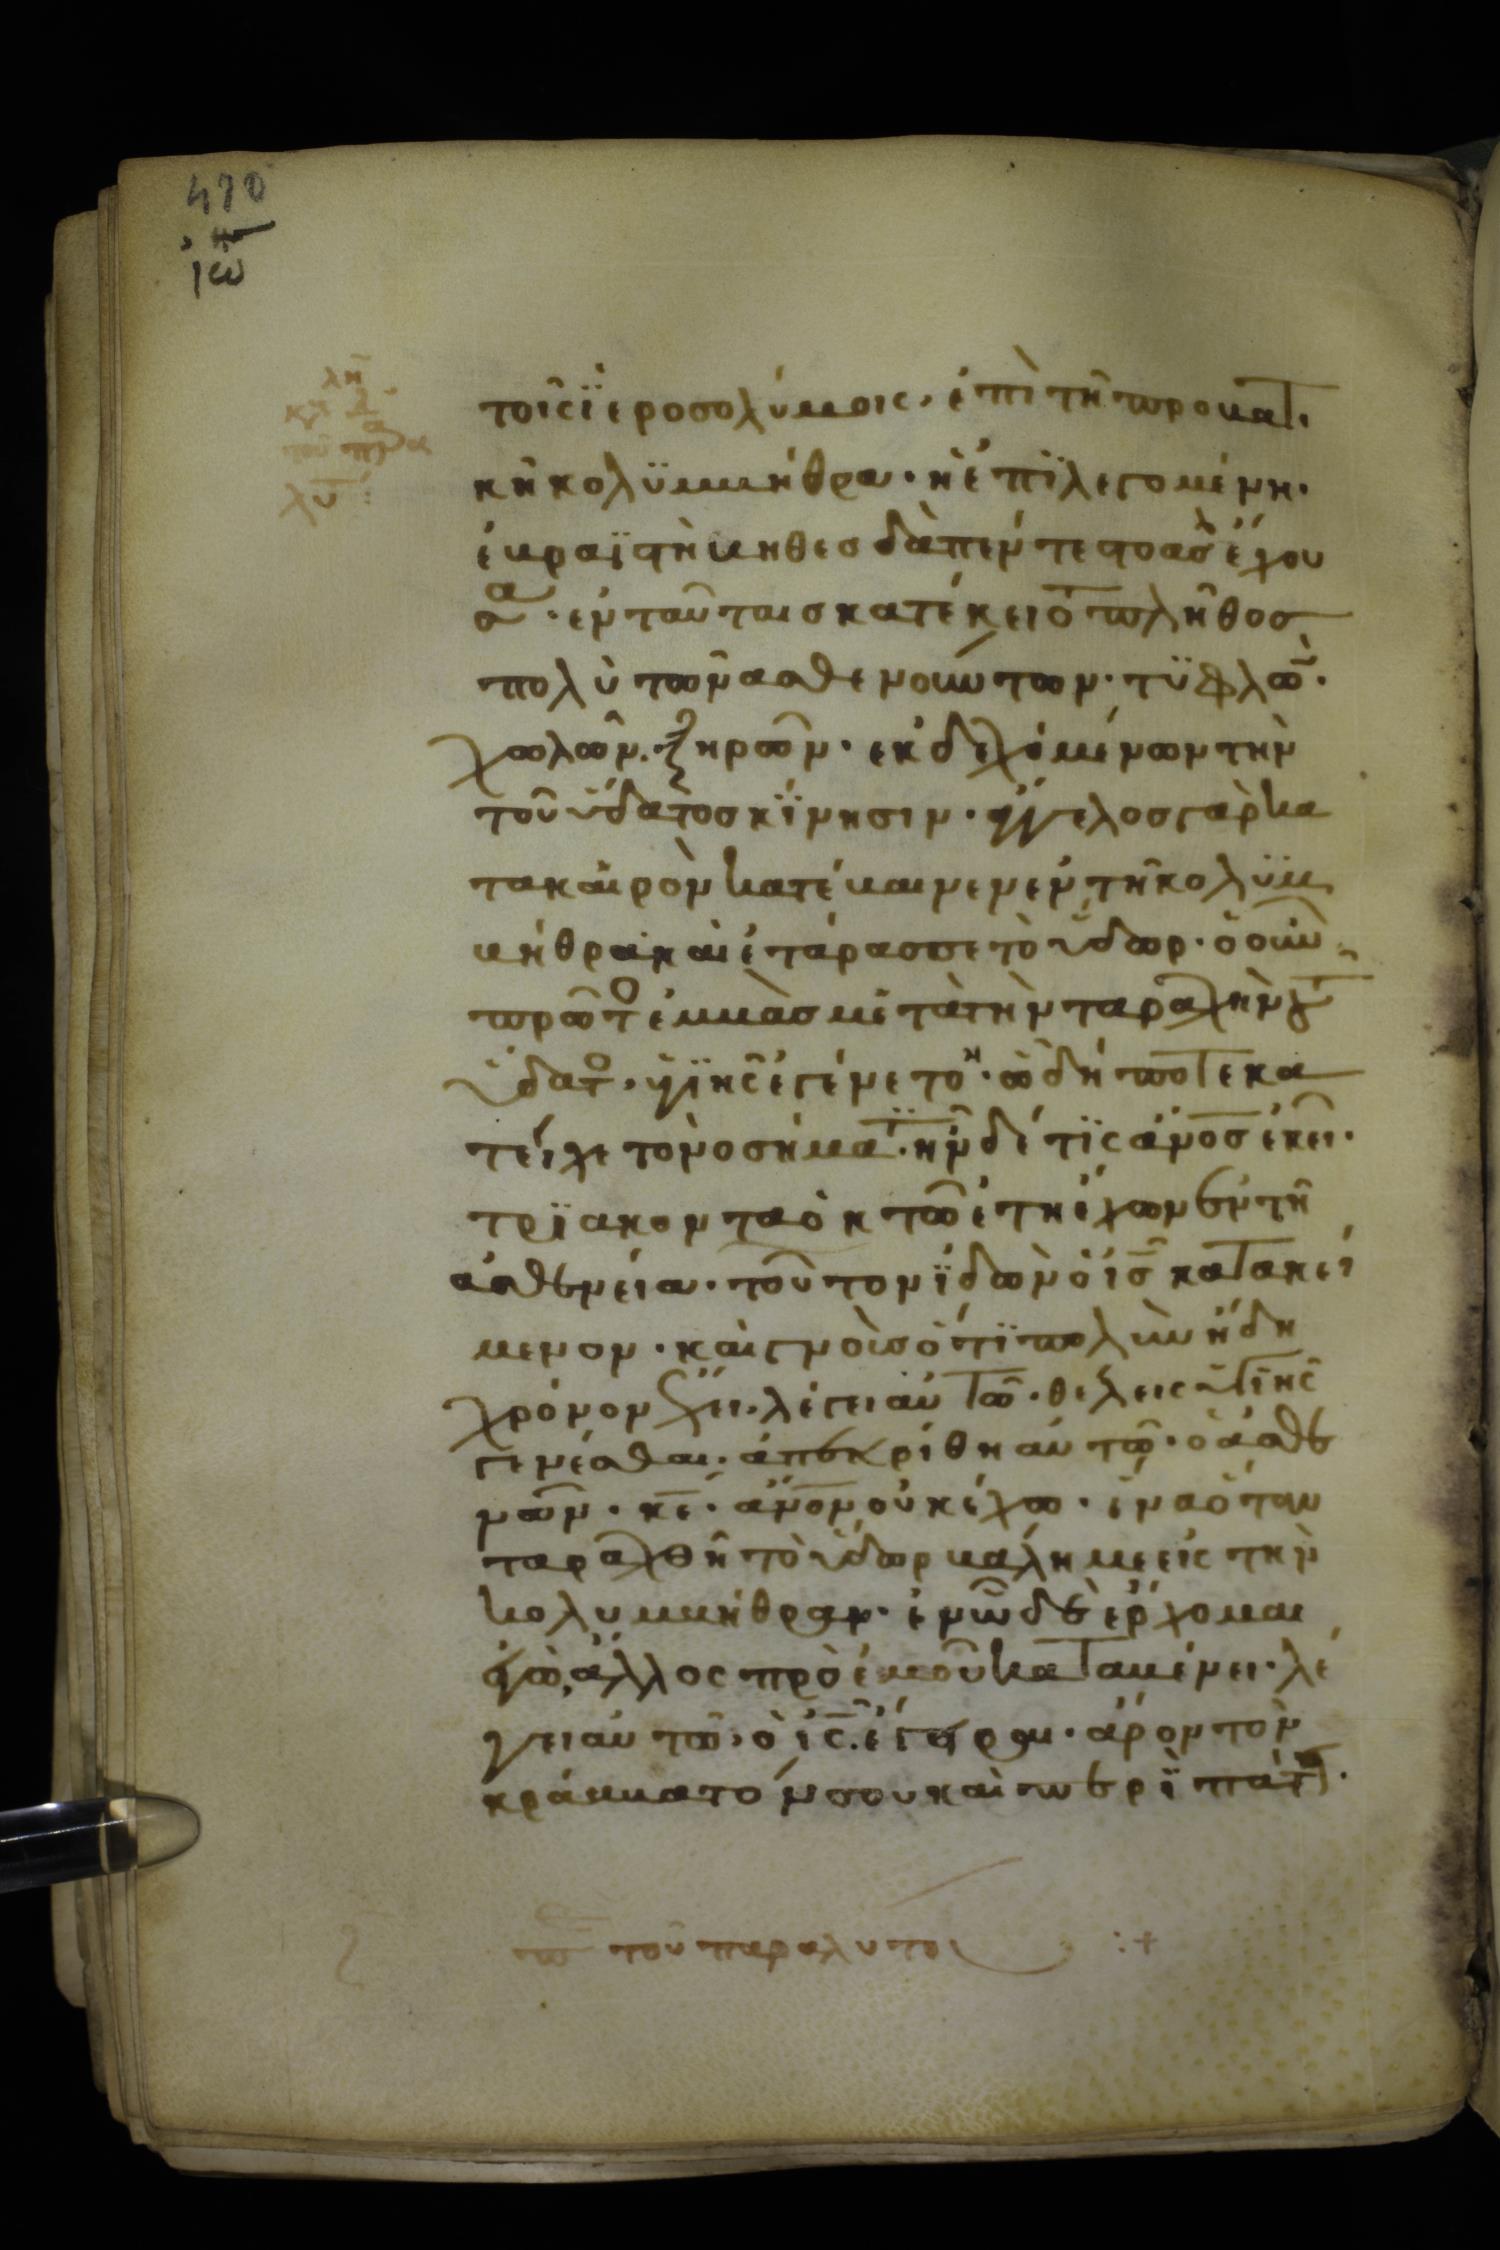 470
ἰω
λη
κυ δ
τοῦ πα α
λυ :
τοῖς ϊεροσολύμοις, ἐπὶ τῆ προβατ.
κῆ κολϋμβήθρα· ἡ ἐπϊλεγομένη·
ἐβραϊστὴ βηθεσδὰ πέντε στοὰς ἔχου
σα· ἐν ταῦταισ κατέκειτο πλῆθοσ
πολὺ τῶν ἀσθενούντων· τϋφλῶν·
χωλῶν· ξηρῶν· ἐκδεχομένων τὴν
τοῦ ὕδατοσ κίνησιν· ἄγγελοσ γὰρ κα
τα καιρὸν κατέβαινεν ἐν τῆ κολϋμ
βήθρα καὶ ἐτάρασσε τὸ ὕδωρ· ὁ οὖν
πρῶτο ἐμβὰσ μετὰ τὴν ταραχὴν τοῦ
ὕδατο, ὑγϊὴς ἐγένετο· ὧ δήποτε κα
τείχετο νοσήματϊ· ἦν δέ τϊς ἄνοσ ἐκεῖ·
τρϊακονταοκτῶ ἔτη ἔχων ἐν τῆ
ἀσθενεία· τοῦτον ϊδὼν ὁ ισ κατακεί
μενον· καὶ γνοὺσ ὅτϊ πολὺν ἤδη
χρόνον ἔχει· λέγει αὐτῶ· θέλεις ὑγϊὴς
γενέσθαι· ἀπεκρίθη αὐτῶ· ὁ ἀσθε
νῶν· κε· ἄνον οὐκ ἔχω· ἵνα ὅταν
ταραχθῆ τὸ ὕδωρ βάλη με εἰς τὴν
κολυμβήθραν· ἐν ὧ δὲ ἔρχομαι
ἐγὼ, ἄλλος πρὸ ἐμοῦ καταβένει· λέ
γει αὐτῶ, ὁ ις· ἔγειραι· ἆρον τὸν
κράββατόν σου καὶ περϊπάτει·
τοῦ παραλύτου :+